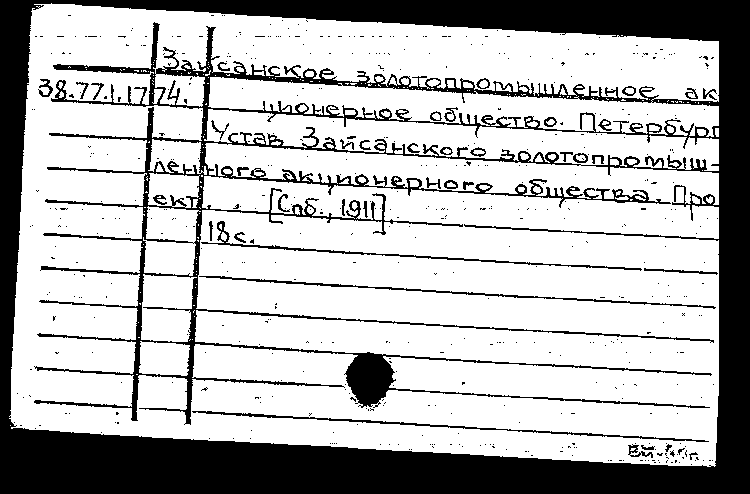 Зайсанское золотопромышленное ак
38.77.1.1774.
ционерное общество. Петербург
Устав Зайсанского золотопромыш-
ленного акционерного общества. Про
ект. . [Спб., 1911].
18 с.